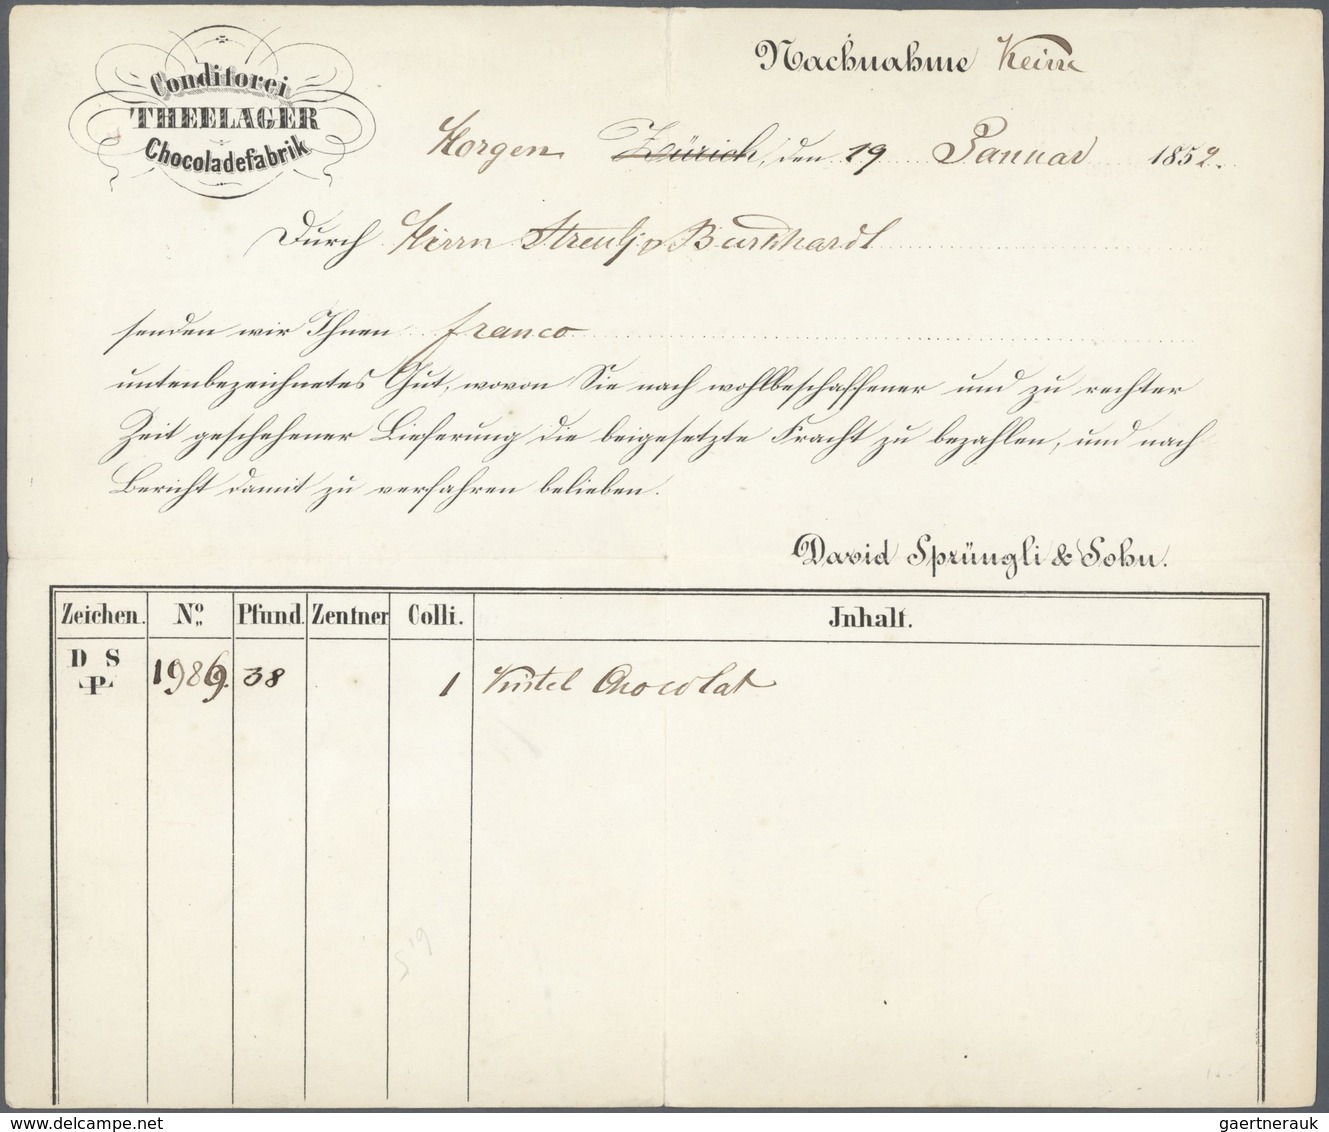 Conditorei
THEELAGER
Chocoladefabrik
Nachnahme Keine
Horgen Zürich, den 19 Januar 1859.
Durch Herrn Streuli, Burkhardt
senden wir Ihnen franco
untenbezeichnetes Gut, wovon Sie nach wohlbeschaffener und zu rechter
Zeit geschehener Lieferung die beigesetzte Fracht zu bezahlen, und nach
Bericht damit zu verfahren belieben.
David Sprüngli & Sohn.
Zeichen. No. Pfund. Zentner Colli. Jnhalt.
D S
P 1989. 38 1 Kistel Chocolat
www.delcampe.net
gaertnerauk